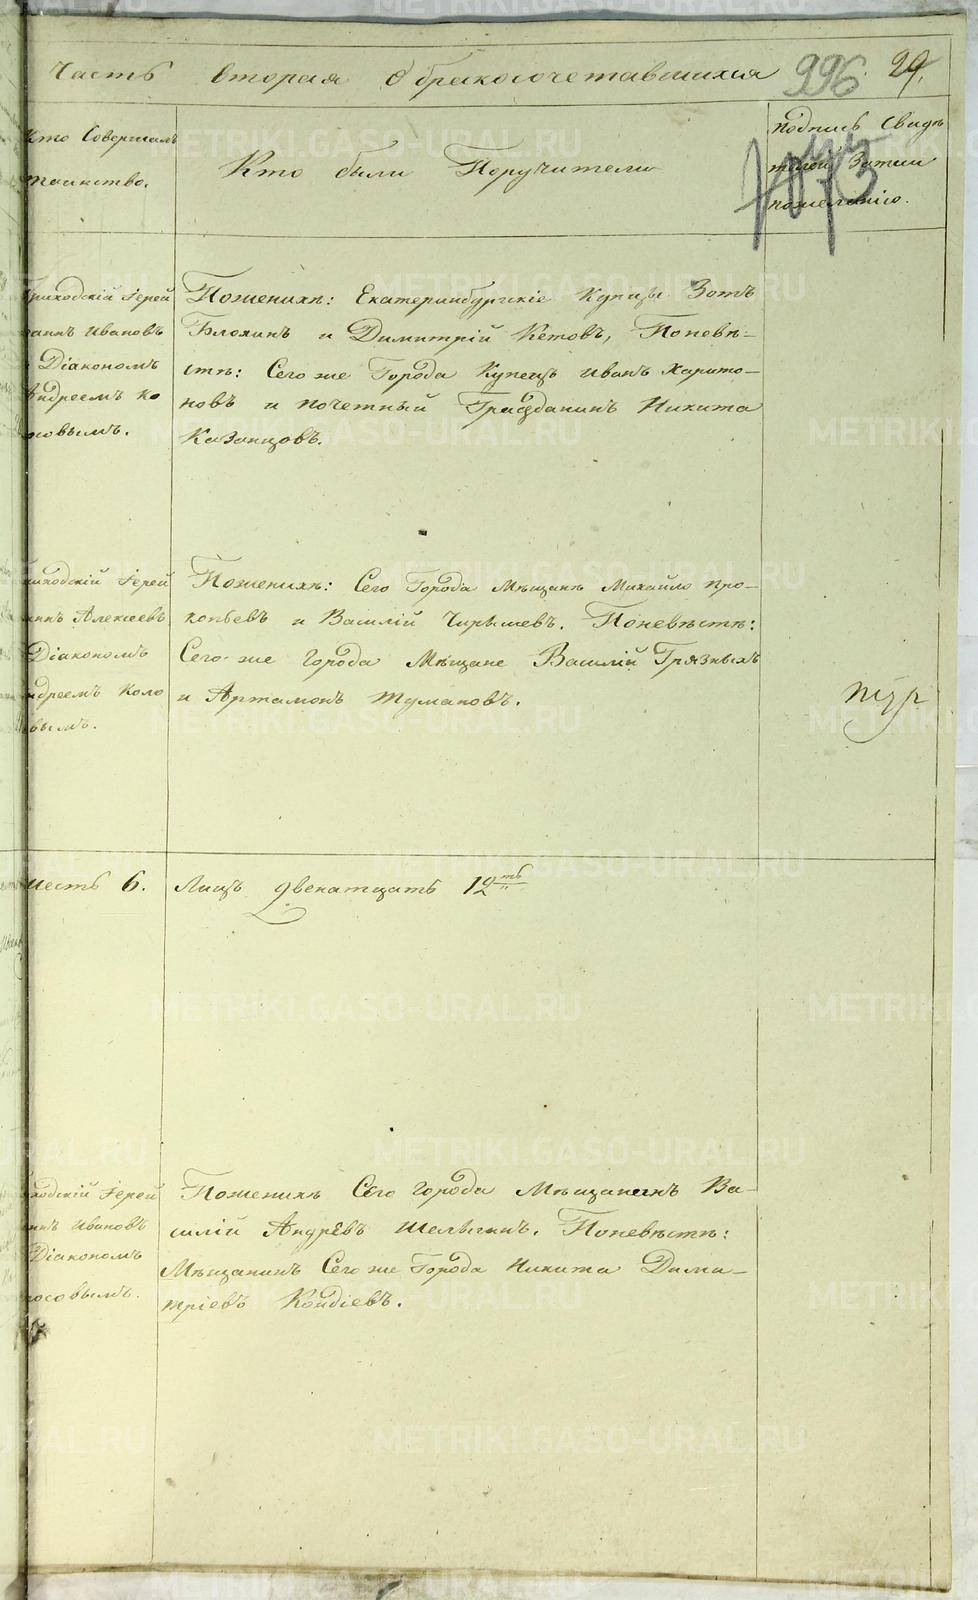 Часть вторая о бракосочетавшихся 996 29.
Кто Совершалъ
таинство.
Кто были Поручители
подпись Свидѣ
телей Записи
пожеланію.
Приходскій Іерей
Іоаннъ Ивановъ
Діакономъ
Андреемъ Ко
лосовымъ.
Поженихѣ: Екатеринбургскіе Купцы Зотъ
Блохинъ и Димитрій Кетовъ, Поневѣ-
стѣ: Сего же Города Купецъ Иванъ Харито-
новъ и почетный Гражданинъ Никита
Казанцовъ.
приходскій Іерей
Алексѣевъ
Діакономъ
Андреемъ Коло
совымъ.
Поженихѣ: Сего Города Мѣщанъ Михайло Про-
копьевъ и Василій Чирышевъ. Поневѣстѣ:
Сего же Города Мѣщане Василій Грязныхъ
и Артамонъ Тумановъ.
шесть 6. Лицъ двенатцать 12ть
приходскій Іерей
Ивановъ
Діакономъ
Колосовымъ.
Поженихѣ Сего Города Мѣщанинъ Ва-
силій Андрѣевъ Шелѣгинъ. Поневѣстѣ:
Мѣщанинъ Сего же Города Никита Дими-
тріевъ Кондіевъ.
METRIKI.GASO-URAL.RU